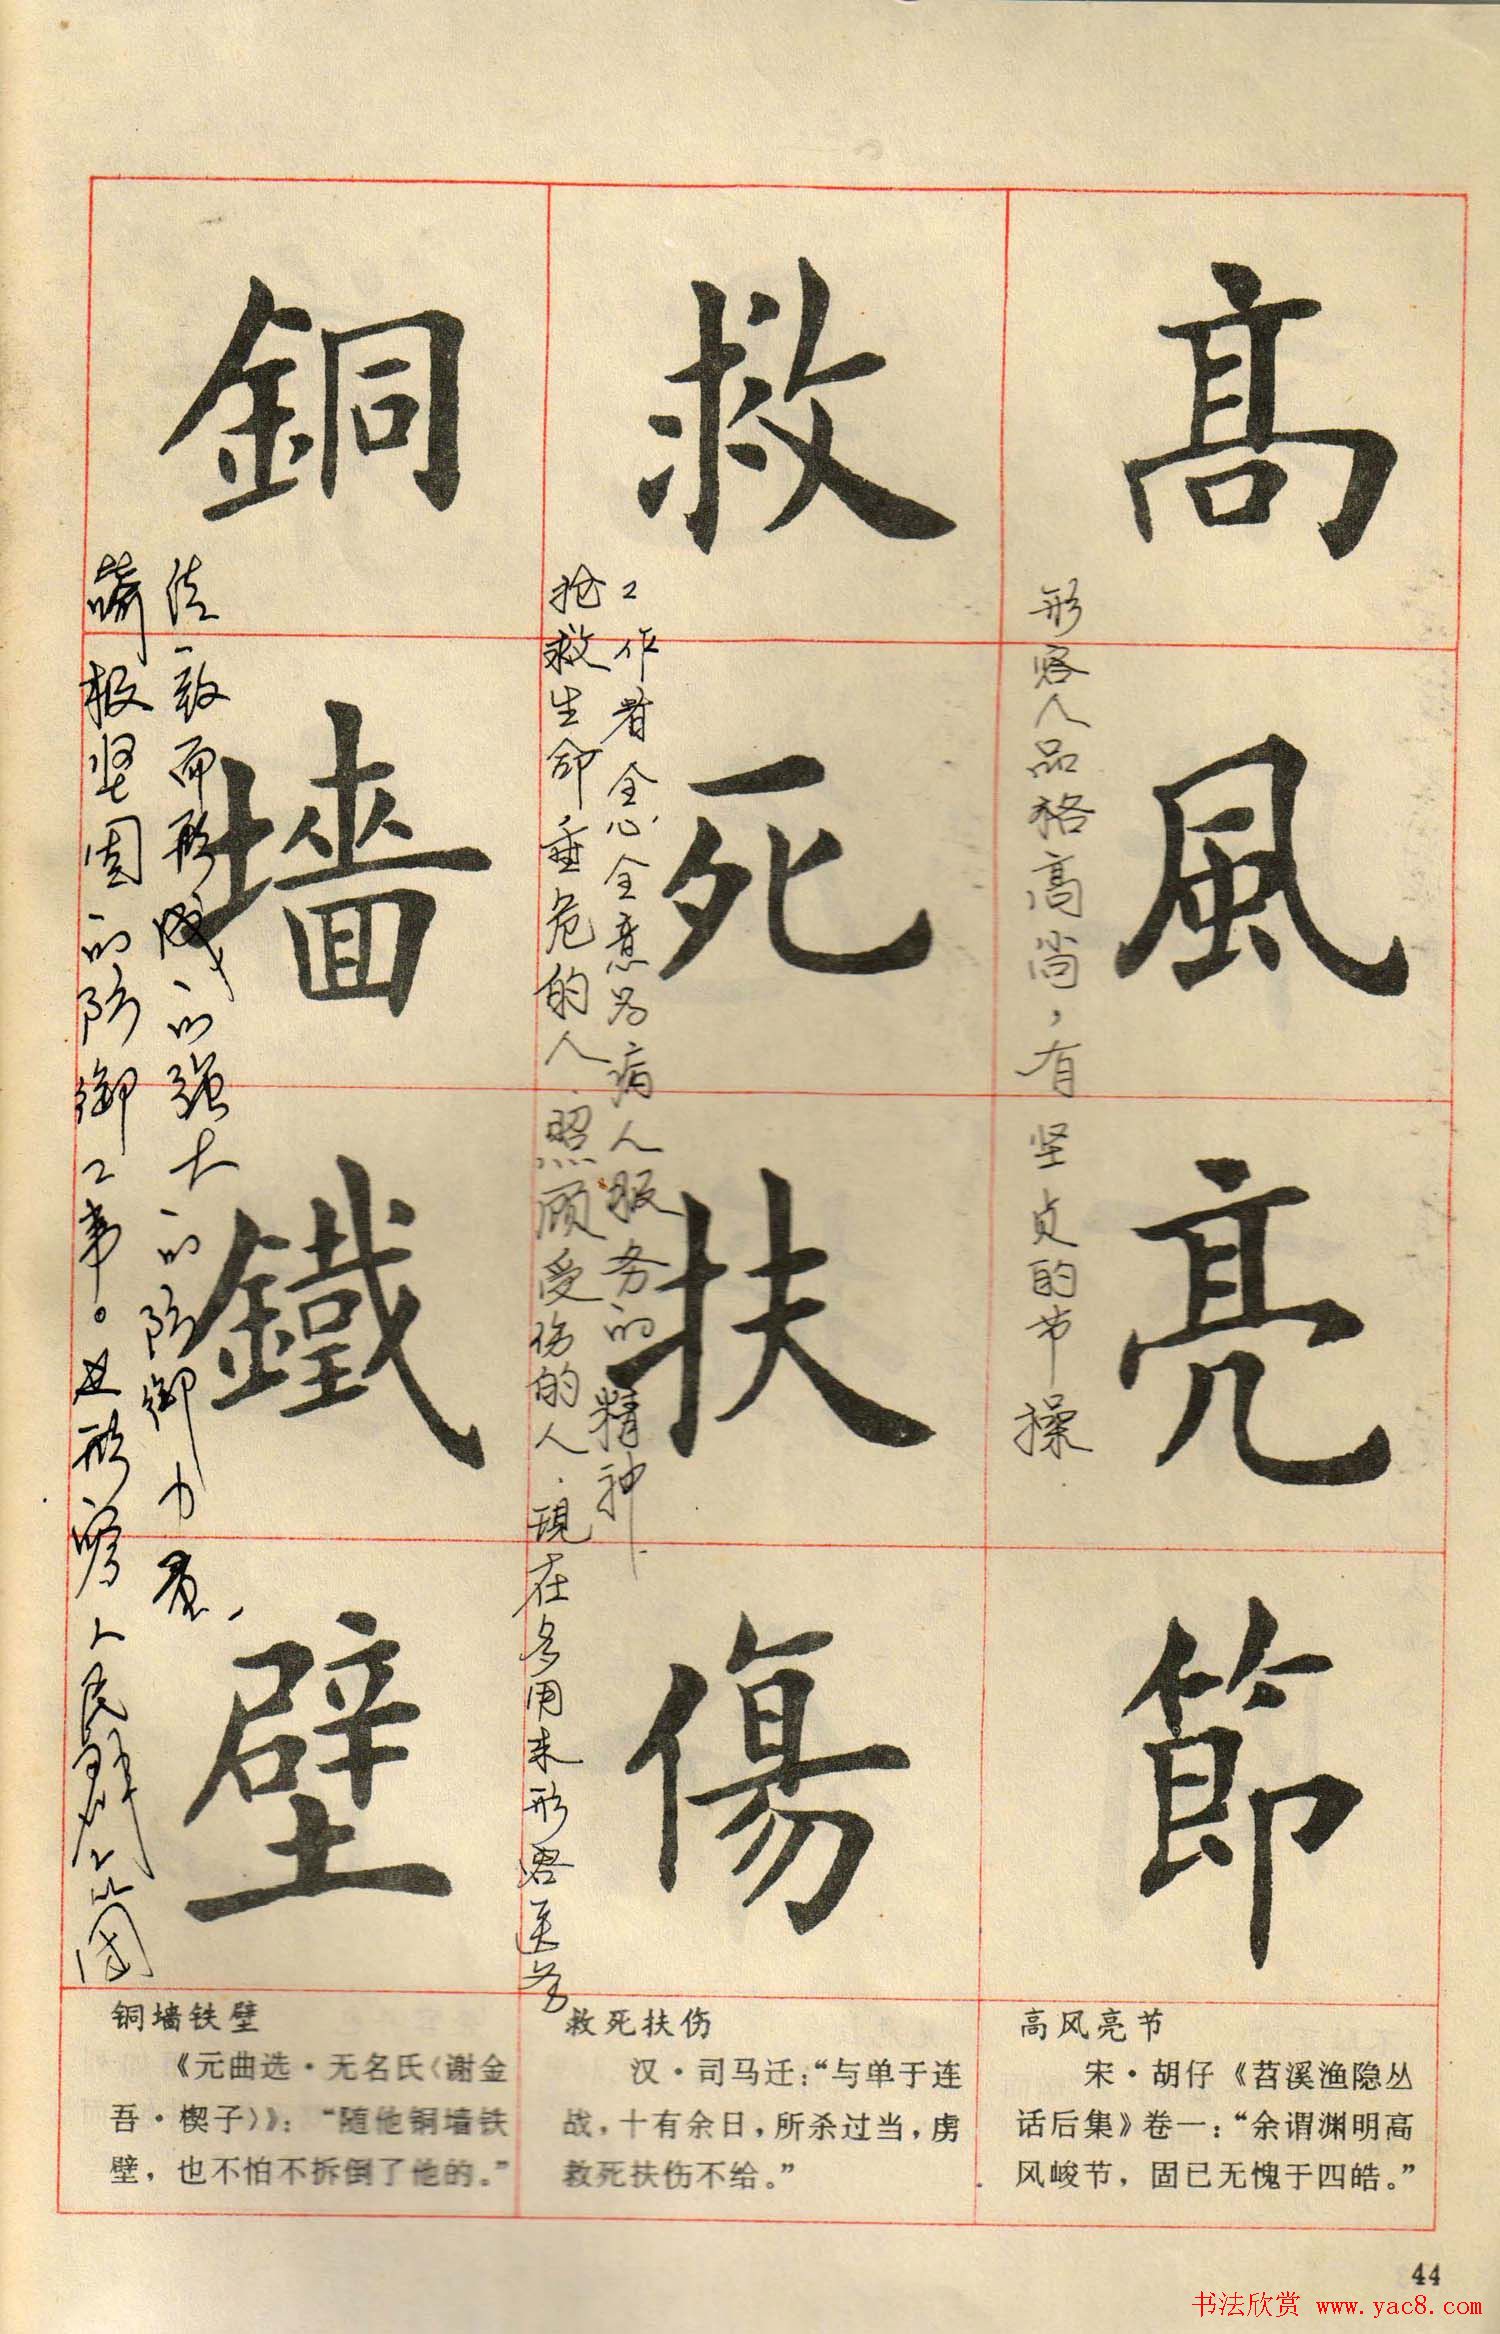 高風亮節
形容人品格高尚，有坚贞的节操
救死扶傷
抢救生命垂危的人．照顾受伤的人．現在多用来形容医务
工作者全心全意为病人服务的精神．
銅墙鐵壁
喻极坚固的防御工事。也形容人民群众团
结一致而形成的强大的防御力量，
高风亮节
宋·胡仔《苕溪渔隐丛
话后集》卷一：“余谓渊明高
风峻节，固已无愧于四皓。”
救死扶伤
汉·司马迁：“与单于连
战，十有余日，所杀过当，虏
救死扶伤不给。”
铜墙铁壁
《元曲选·无名氏〈谢金
吾·楔子〉》：“随他铜墙铁
壁，也不怕不拆倒了他的。”
44
书法欣赏 www.yac8.com